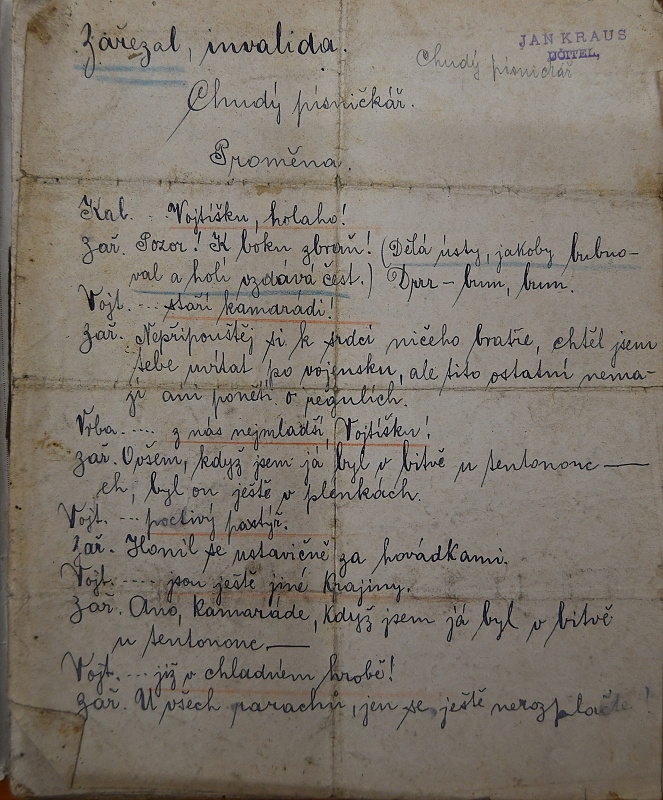 Zářezal, invalida.
JAN KRAUS
UČITEL,
Chudý písničkář
Chudý písničkář.
Proměna.
Kal. ... Vojtíšku, holaho!
Zář. Pozor! K boku zbraň! (Dělá ústy, jakoby bubno-
val a holí vzdává čest.) Drrr - bum, bum.
Vojt. ... staří kamarádi!
Zář. Nepřipouštěj si k srdci ničeho bratře, chtěl jsem
tebe uvítat po vojensku, ale tito ostatní nema-
jí ani ponětí o regulích.
Vrba. .... z nás nejmladší, Vojtíšku!
Zář. Ovšem, když jsem já byl v bitvě u tentononc —
eh, byl on ještě v plenkách.
Vojt. ... poctivý pastýř.
Zář. Honil se ustavičně za hovádkami.
Vojt. .... jsou ještě jiné krajiny.
Zář. Ano, kamaráde, když jsem já byl v bitvě
u tentononc —
Vojt. ... již v chladném hrobě!
Zář. U všech parachů, jen se ještě nerozplačte!